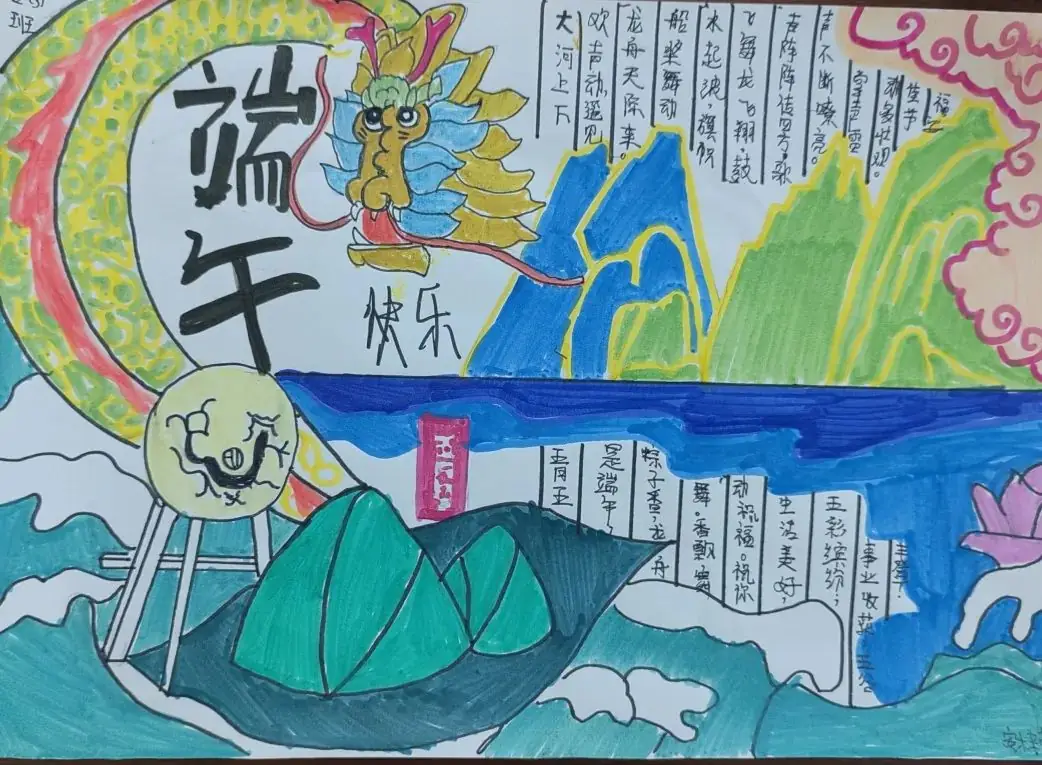 班
端
午
快乐
大河上下
欢声动遥见
龙舟天际来。
船桨舞动
水起波，旗帜
飞舞龙飞翔。鼓
声阵阵传号，歌
声不断嘹亮。
动多壮观。
佳节
福
五月五
是端午，
粽子香，龙舟
舞。香飘
动祝福。祝你
生活美好，
五彩缤纷；
事业收获